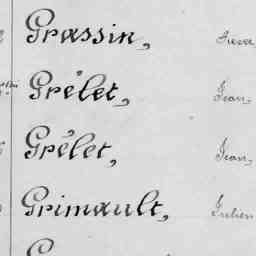 Grassin,
Grêlet, Jean,
Grêlet, Jean,
Grimault, Julien